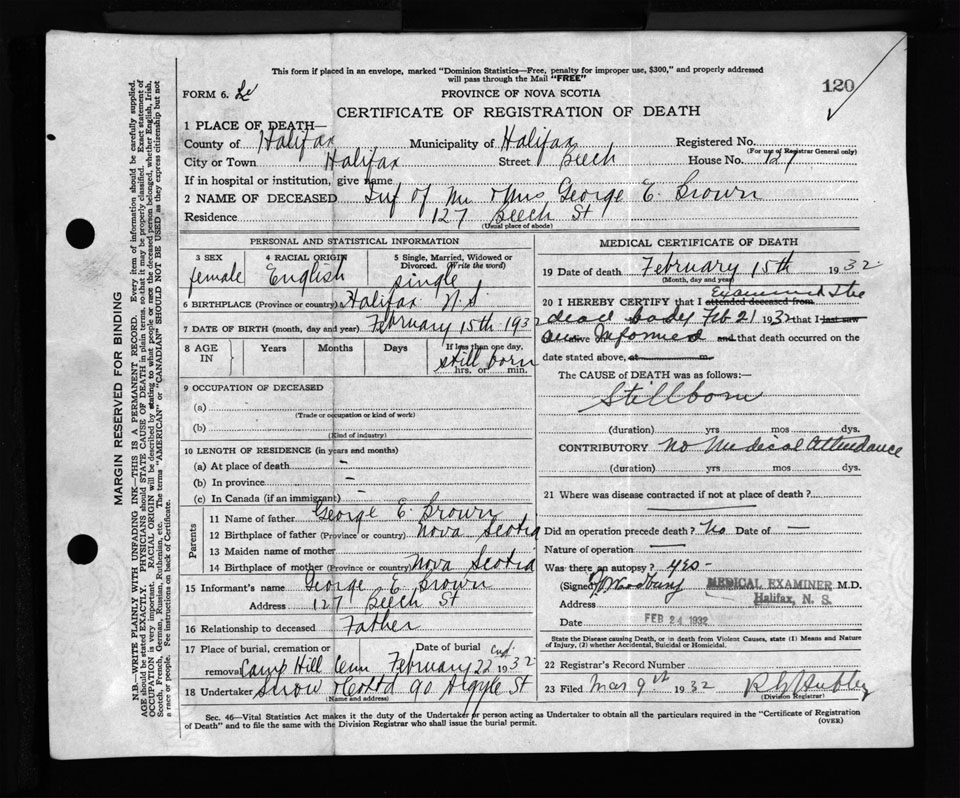 This form if placed in an envelope, marked "Dominion Statistics—Free, penalty for improper use, $300," and properly addressed
will pass through the Mail "FREE"
FORM 6.
PROVINCE OF NOVA SCOTIA
120
CERTIFICATE OF REGISTRATION OF DEATH
1 PLACE OF DEATH—
County of Halifax Municipality of Halifax Registered No.
(For use of Registrar General only)
City or Town Halifax Street Beech House No. 127
If in hospital or institution, give name
2 NAME OF DECEASED Inf of Mr & Mrs George E. Brown
Residence 127 Beech St
(Usual place of abode)
PERSONAL AND STATISTICAL INFORMATION
3 SEX 4 RACIAL ORIGIN 5 Single, Married, Widowed or
Divorced. (Write the word)
female English single
6 BIRTHPLACE (Province or country) Halifax N.S.
7 DATE OF BIRTH (month, day and year) February 15th 1932
8 AGE IN Years Months Days If less than one day,
still born
hrs. or min.
9 OCCUPATION OF DECEASED
(a)
(Trade or occupation or kind of work)
(b)
(Kind of industry)
10 LENGTH OF RESIDENCE (in years and months)
(a) At place of death –
(b) In province –
(c) In Canada (if an immigrant) –
Parents
11 Name of father George E. Brown
12 Birthplace of father (Province or country) Nova Scotia
13 Maiden name of mother
14 Birthplace of mother (Province or country) Nova Scotia
15 Informant's name George E Brown
Address 127 Beech St
16 Relationship to deceased Father
17 Place of burial, cremation or Date of burial
removal Camp Hill Cem February 22nd 1932
18 Undertaker Snow & Co Ltd 90 Argyle St
(Name and address)
MEDICAL CERTIFICATE OF DEATH
19 Date of death February 15th 1932
(Month, day and year)
20 I HEREBY CERTIFY that I attended deceased from Examined the
dead body Feb 21 1932 that I last saw
alive Informed and that death occurred on the
date stated above, at m
The CAUSE of DEATH was as follows:—
Stillborn
(duration) yrs mos dys.
CONTRIBUTORY no medical attendance
(duration) yrs mos dys.
21 Where was disease contracted if not at place of death?
Did an operation precede death? No Date of —
Nature of operation —
Was there an autopsy? yes -
(Signed) MEDICAL EXAMINER M.D.
Address Halifax, N. S.
Date FEB 24 1932
State the Disease causing Death, or in death from Violent Causes, state (1) Means and Nature
of Injury, (2) whether Accidental, Suicidal or Homicidal.
22 Registrar's Record Number
23 Filed Mar 9th 1932
(Division Registrar)
Sec. 46—Vital Statistics Act makes it the duty of the Undertaker or person acting as Undertaker to obtain all the particulars required in the "Certificate of Registration
of Death" and to file the same with the Division Registrar who shall issue the burial permit.
(OVER)
MARGIN RESERVED FOR BINDING
N.B.—WRITE PLAINLY WITH UNFADING INK—THIS IS A PERMANENT RECORD. Every item of information should be carefully supplied.
AGE should be stated EXACTLY. PHYSICIANS should STATE CAUSE OF DEATH in plain terms, so that it may be properly classified. Exact statement of
OCCUPATION is very important. RACIAL ORIGIN will be described by stating to what people or race the deceased person belonged, whether English, Irish,
Scotch, French, German, Russian, Ruthenian, etc. The terms "AMERICAN" or "CANADIAN" SHOULD NOT BE USED as they express citizenship but not
a race or people. See instructions on back of Certificate.